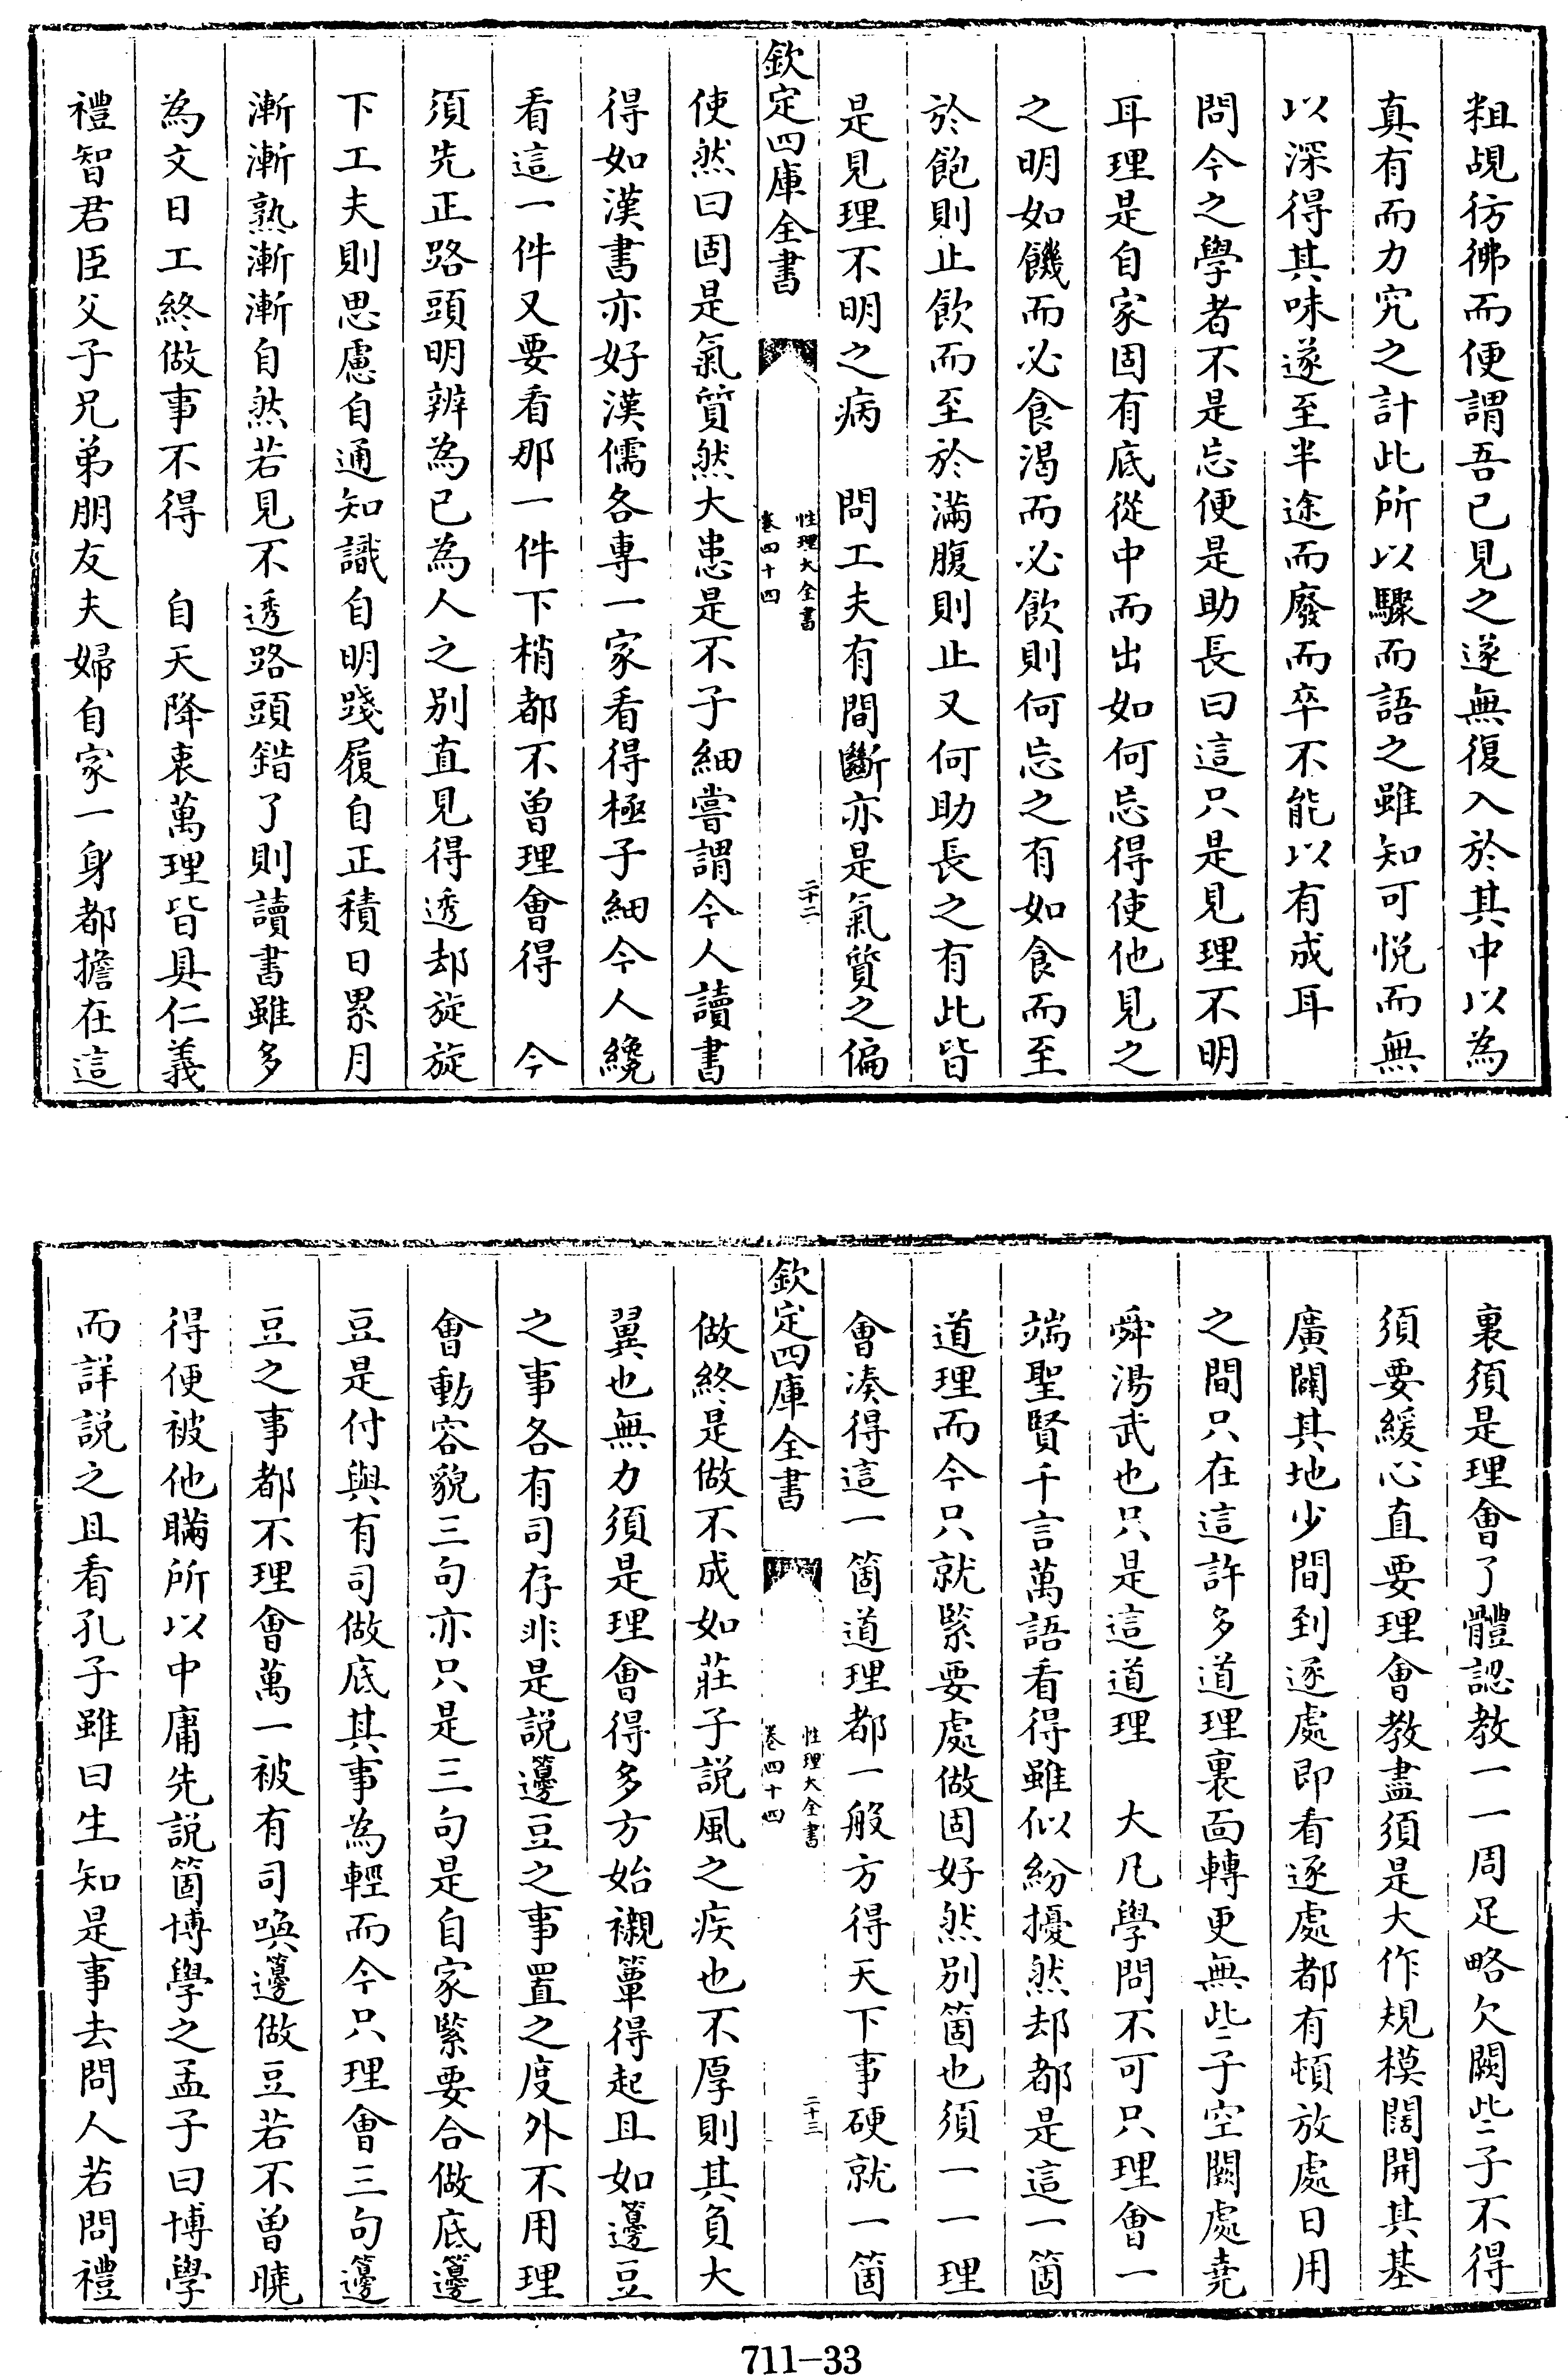 粗覘彷彿而便謂吾已見之遂無復入於其中以為
真有而力究之計此所以驟而語之雖知可悦而無
以深得其味遂至半途而廢而卒不能以有成耳
問今之學者不是忘便是助長曰這只是見理不明
耳理是自家固有底從中而出如何忘得使他見之
之明如饑而必食渴而必飲則何忘之有如食而至
於飽則止飲而至於滿腹則止又何助長之有此皆
是見理不明之病　問工夫有間斷亦是氣質之偏
欽定四庫全書
性理大全書
卷四十四
二十二
使然曰固是氣質然大患是不子細嘗謂今人讀書
得如漢書亦好漢儒各專一家看得極子細今人纔
看這一件又要看那一件下梢都不曾理會得　今
須先正路頭明辨為已為人之别直見得透却旋旋
下工夫則思慮自通知識自明踐履自正積日累月
漸漸熟漸漸自然若見不透路頭錯了則讀書雖多
為文日工終做事不得　自天降衷萬理皆具仁義
禮智君臣父子兄弟朋友夫婦自家一身都擔在這
裏須是理會了體認教一一周足略欠闕些子不得
須要緩心直要理會教盡須是大作規模闊開其基
廣闢其地少間到逐處即看逐處都有頓放處日用
之間只在這許多道理裏面轉更無些子空闕處堯
舜湯武也只是這道理　大凡學問不可只理會一
端聖賢千言萬語看得雖似紛擾然却都是這一箇
道理而今只就緊要處做固好然别箇也須一一理
會凑得這一箇道理都一般方得天下事硬就一箇
欽定四庫全書
性理大全書
卷四十四
二十三
做終是做不成如莊子說風之疾也不厚則其負大
翼也無力須是理會得多方始襯簟得起且如籩豆
之事各有司存非是說籩豆之事置之度外不用理
會動容貌三句亦只是三句是自家緊要合做底籩
豆是付與有司做底其事為輕而今只理會三句籩
豆之事都不理會萬一被有司喚籩做豆若不曾曉
得便被他瞞所以中庸先説箇博學之孟子曰博學
而詳説之且看孔子雖曰生知是事去問人若問禮
711-33